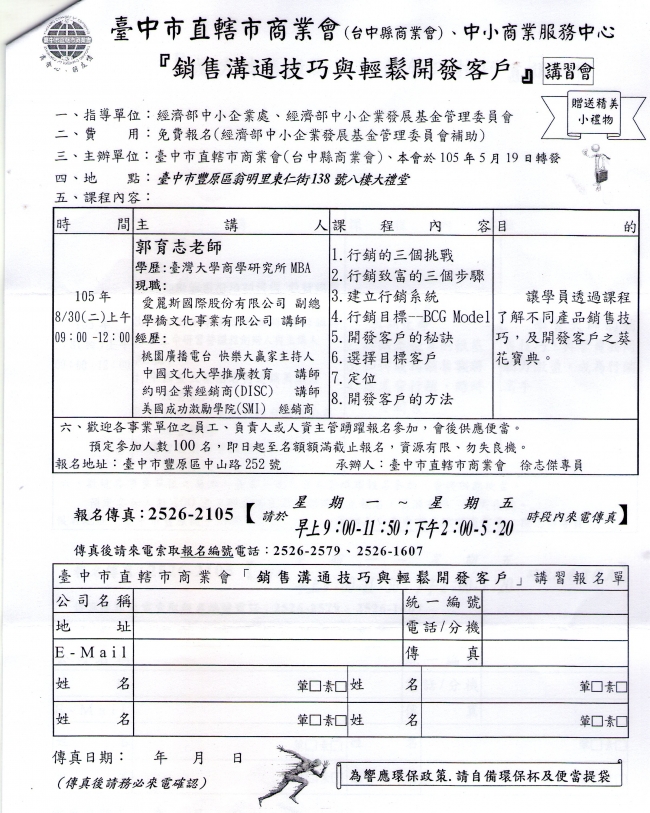 臺中市直轄市商業會(台中縣商業會)、中小商業服務中心
『銷售溝通技巧與輕鬆開發客戶』講習會
贈送精美
小禮物
一、指導單位：經濟部中小企業處、經濟部中小企業發展基金管理委員會
二、費　　用：免費報名(經濟部中小企業發展基金管理委員會補助)
三、主辦單位：臺中市直轄市商業會(台中縣商業會)、本會於 105 年 5 月 19 日轉發
四、地　　點：臺中市豐原區翁明里東仁街 138 號八樓大禮堂
五、課程內容：
時　間 主　講　人 課　程　內　容 目　的
105 年
8/30(二)上午
09：00 -12：00
郭育志老師
學歷:臺灣大學商學研究所 MBA
現職:
愛麗斯國際股份有限公司 副總
學橋文化事業有限公司 講師
經歷:
桃園廣播電台 快樂大贏家主持人
中國文化大學推廣教育 講師
約明企業經銷商(DISC) 講師
美國成功激勵學院(SMI) 經銷商
1.行銷的三個挑戰
2.行銷致富的三個步驟
3.建立行銷系統
4.行銷目標--BCG Model
5.開發客戶的秘訣
6.選擇目標客戶
7.定位
8.開發客戶的方法
讓學員透過課程
了解不同產品銷售技
巧，及開發客戶之葵
花寶典。
六、歡迎各事業單位之員工、負責人或人資主管踴躍報名參加，會後供應便當。
預定參加人數 100 名，即日起至名額額滿截止報名，資源有限、勿失良機。
報名地址：臺中市豐原區中山路 252 號　承辦人：臺中市直轄市商業會　徐志傑專員
報名傳真：2526-2105【請於 星期一～星期五
早上9：00-11：50；下午2：00-5：20 時段內來電傳真】
傳真後請來電索取報名編號電話：2526-2579、2526-1607
臺中市直轄市商業會「銷售溝通技巧與輕鬆開發客戶」講習報名單
公司名稱　統一編號
地　址　電話/分機
E-Mail　傳　真
姓　名　葷□素□ 姓　名　葷□素□
姓　名　葷□素□ 姓　名　葷□素□
傳真日期：　年　月　日
(傳真後請務必來電確認)
為響應環保政策.請自備環保杯及便當提袋